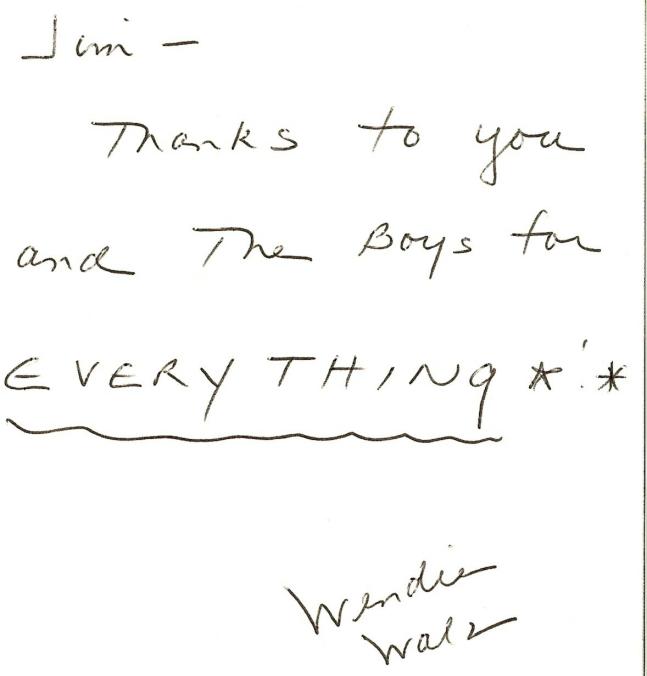 Jim —
Thanks to you
and The Boys for
EVERYTHING *!*
Wendie
Walz